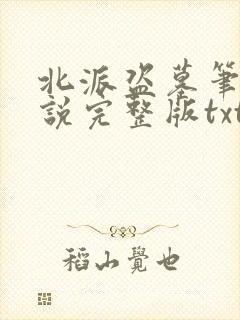 北派盜墓筆
說完整版txt
稻山覺也